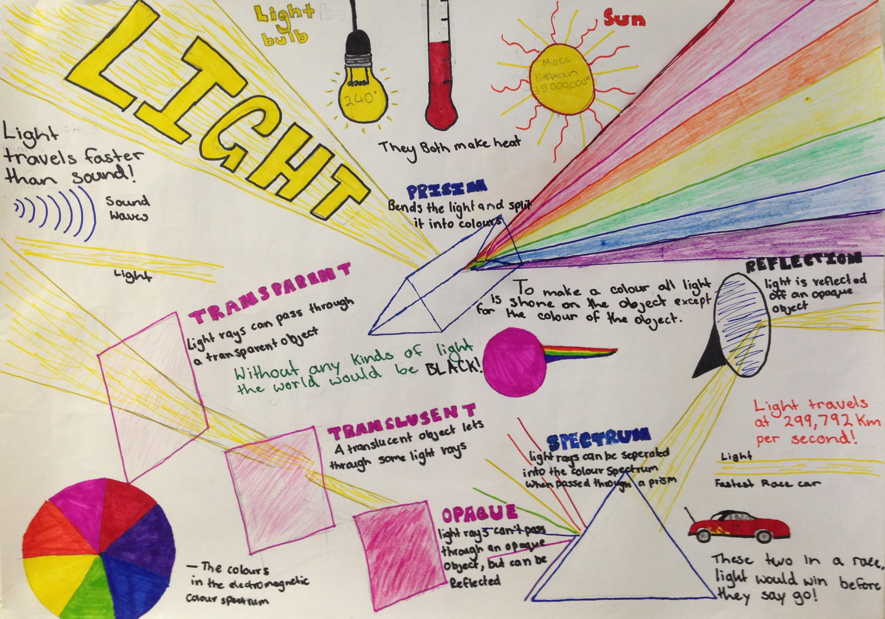 LIGHT
Light
bulb
240°
Sun
More
than
They Both make heat
Light
travels faster
than sound!
Sound
Waves
Light
PRISIM
Bends the light and split
it into colours
TRANSPARENT
Light rays can pass through
a transparent object
To make a colour all light
is shone on the object except
for the colour of the object.
REFLECTION
light is reflected
off an opaque
object
Without any kinds of light
the world would be BLACK!
TRANSLUSENT
A translucent object lets
through some light rays
SPECTRUM
light rays can be seperated
into the colour spectrum
when passed through a prism
Light travels
at 299,792 Km
per second!
Light
Fastest Race car
These two in a race,
light would win before
they say go!
OPAQUE
light rays can't pass
through an opaque
object, but can be
Reflected
— The colours
in the electromagnetic
colour spectrum